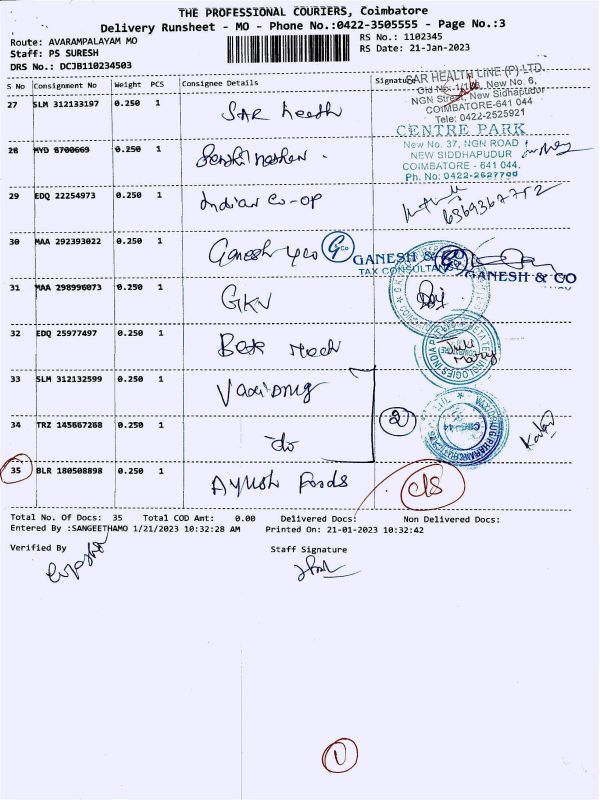 THE PROFESSIONAL COURIERS, Coimbatore
Delivery Runsheet - MO - Phone No.:0422-3505555 - Page No.:3
Route: AVARAMPALAYAM MO
RS No.: 1102345
Staff: PS SURESH
RS Date: 21-Jan-2023
DRS No.: DCJB110234503
S No Consignment No Weight PCS Consignee Details Signature
SAR HEALTH LINE (P) LTD.
Old No. 1/183, New No. 6,
NGN Street, New Sidhapudur
COIMBATORE-641 044
Tele: 0422-2525921
27 SLM 312133197 0.250 1 SAR Health
CENTRE PARK
New No. 37, NGN ROAD
NEW SIDDHAPUDUR
COIMBATORE - 641 044.
Ph. No: 0422-2627700
28 MYD 8700669 0.250 1
29 EDQ 22254973 0.250 1 Indian Co-op
6369367752
30 MAA 292393022 0.250 1 Ganesh &co
G Co
GANESH & CO
TAX CONSULTANTS
GANESH & CO
31 MAA 298996073 0.250 1 GKV
32 EDQ 25977497 0.250 1 Best Mech
Juli
Mary
33 SLM 312132599 0.250 1 Vaxidrug
34 TRZ 145667268 0.250 1 do
2
35 BLR 180508898 0.250 1 Ayush Foods
c/s
Total No. Of Docs: 35 Total COD Amt: 0.00 Delivered Docs: Non Delivered Docs:
Entered By :SANGEETHAMO 1/21/2023 10:32:28 AM Printed On: 21-01-2023 10:32:42
Verified By
Staff Signature
1